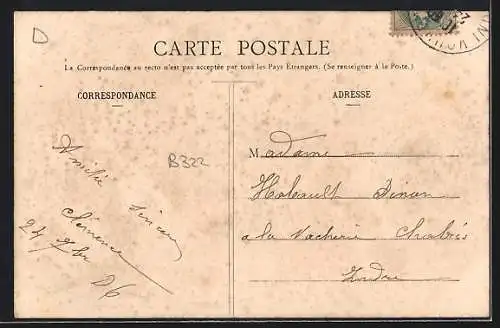 D
CARTE POSTALE
La Correspondance au recto n'est pas acceptée par tous les Pays Etrangers. (Se renseigner à la Poste.)
CORRESPONDANCE
ADRESSE
Amitié sincère
Clémence
24 7bre 06
B322
Madame
a la Vacherie Chabris
Indre